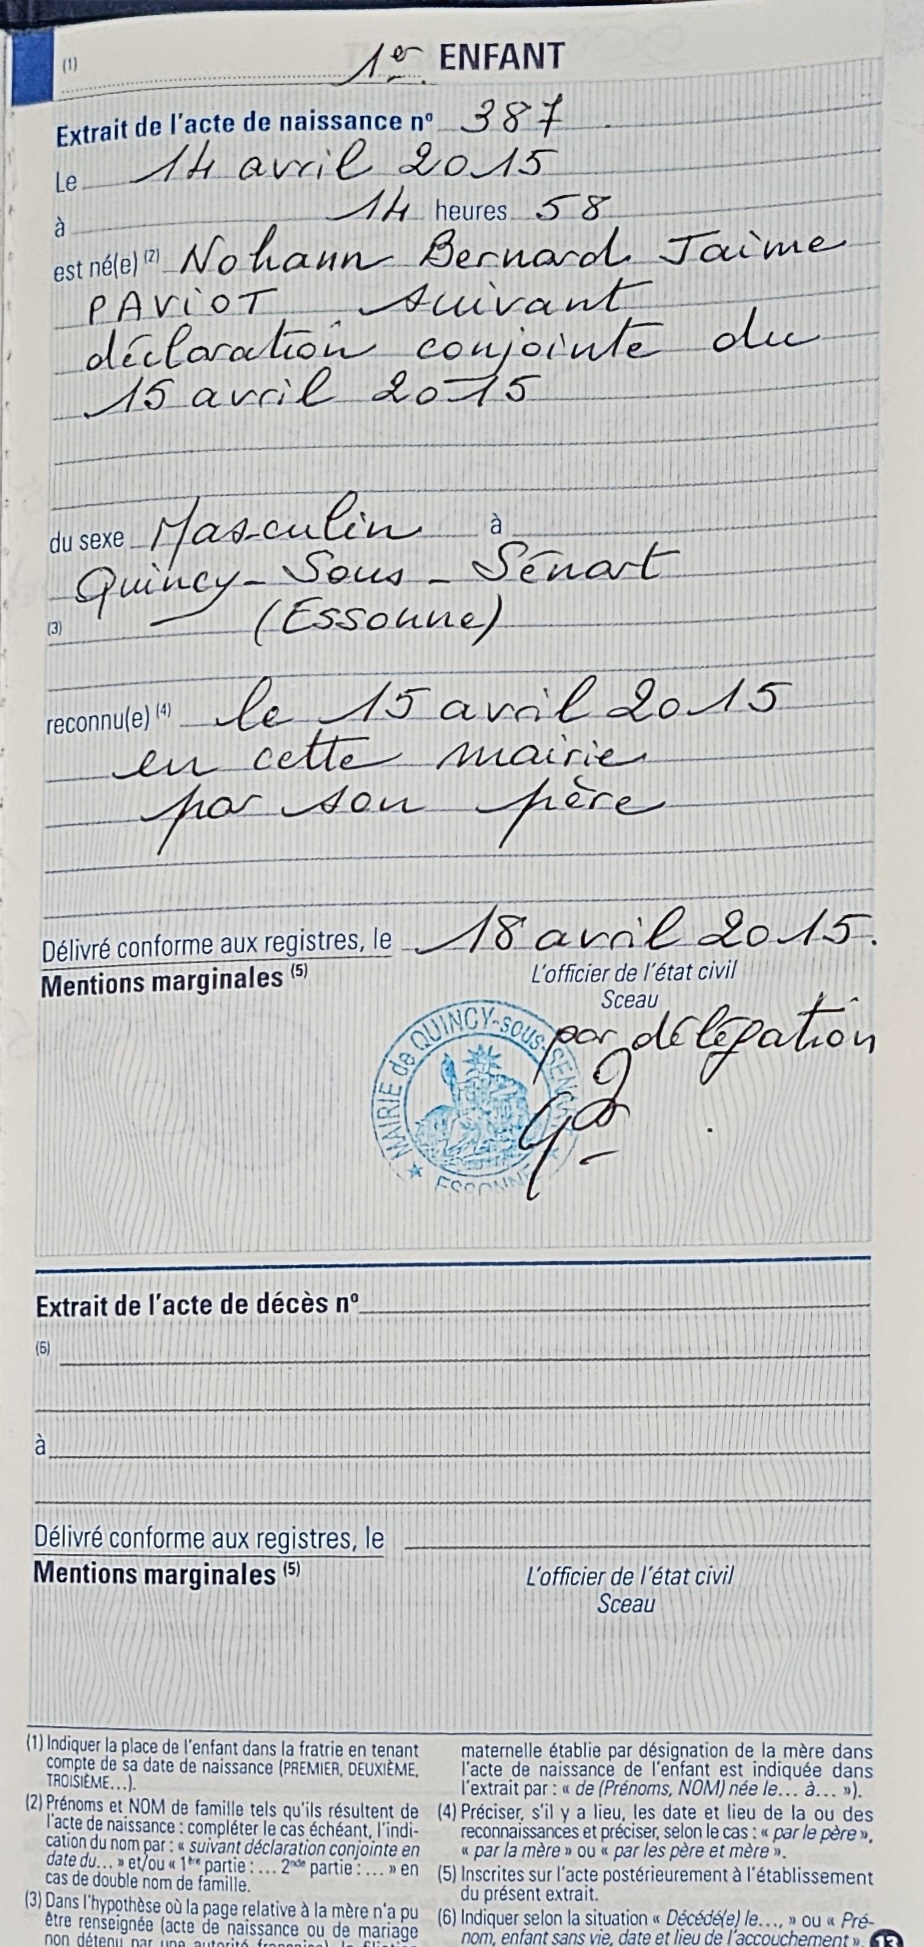 (1) 1er ENFANT
Extrait de l'acte de naissance nº 387
Le 14 avril 2015
à 14 heures 58
est né(e) (2) Nohann Bernard Jaime
PAVIOT suivant
déclaration conjointe du
15 avril 2015
du sexe Masculin à
Quincy-Sous-Sénart
(3) (Essonne)
reconnu(e) (4) le 15 avril 2015
en cette mairie
par son père
Délivré conforme aux registres, le 18 avril 2015.
Mentions marginales (5)
L'officier de l'état civil
Sceau
par délégation
MAIRIE de QUINCY-sous-SENART
ESSONNE
Extrait de l'acte de décès nº
(6)
à
Délivré conforme aux registres, le
Mentions marginales (5)
L'officier de l'état civil
Sceau
(1) Indiquer la place de l'enfant dans la fratrie en tenant
compte de sa date de naissance (PREMIER, DEUXIÈME,
TROISIÈME...).
(2) Prénoms et NOM de famille tels qu'ils résultent de
l'acte de naissance : compléter le cas échéant, l'indi-
cation du nom par : « suivant déclaration conjointe en
date du... » et/ou « 1ère partie : ... 2nde partie : .... » en
cas de double nom de famille.
(3) Dans l'hypothèse où la page relative à la mère n'a pu
être renseignée (acte de naissance ou de mariage
non détenu par une autorité française), la filiation
maternelle établie par désignation de la mère dans
l'acte de naissance de l'enfant est indiquée dans
l'extrait par : « de (Prénoms, NOM) née le... à... »).
(4) Préciser, s'il y a lieu, les date et lieu de la ou des
reconnaissances et préciser, selon le cas : « par le père »,
« par la mère » ou « par les père et mère ».
(5) Inscrites sur l'acte postérieurement à l'établissement
du présent extrait.
(6) Indiquer selon la situation « Décédé(e) le..., » ou « Pré-
nom, enfant sans vie, date et lieu de l'accouchement ».
13